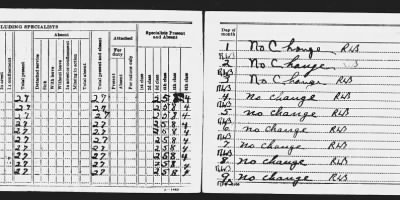 CLUDING SPECIALISTS
Absent
Attached
Specialists Present and Absent
In arrest
In confinement
Total present
Detailed service
Sick
With leave
Without leave
In arrest or confinement
Missing in action
Total absent
Total present and absent
For duty
For rations only
1st class
2d class
3d class
4th class
5th class
6th class
27 27 2 5 8 4
27 27 2 5 8 4
27 27 2 5 8 4
27 27 2 5 8 4
27 27 2 5 8 4
27 27 2 5 8 4
27 27 2 5 8 4
27 27 2 5 8 4
27 27 2 5 8 4
Day of month
1 No Change RLB
2 No Change
RLB
3 No Change RLB
RLB
4 no change RLB
RLB
5 no change RLB
RLB
6 no change RLB
RLB
7 No change RLB
RLB
8 no change RLB
RLB
9 no change RLB
RLB